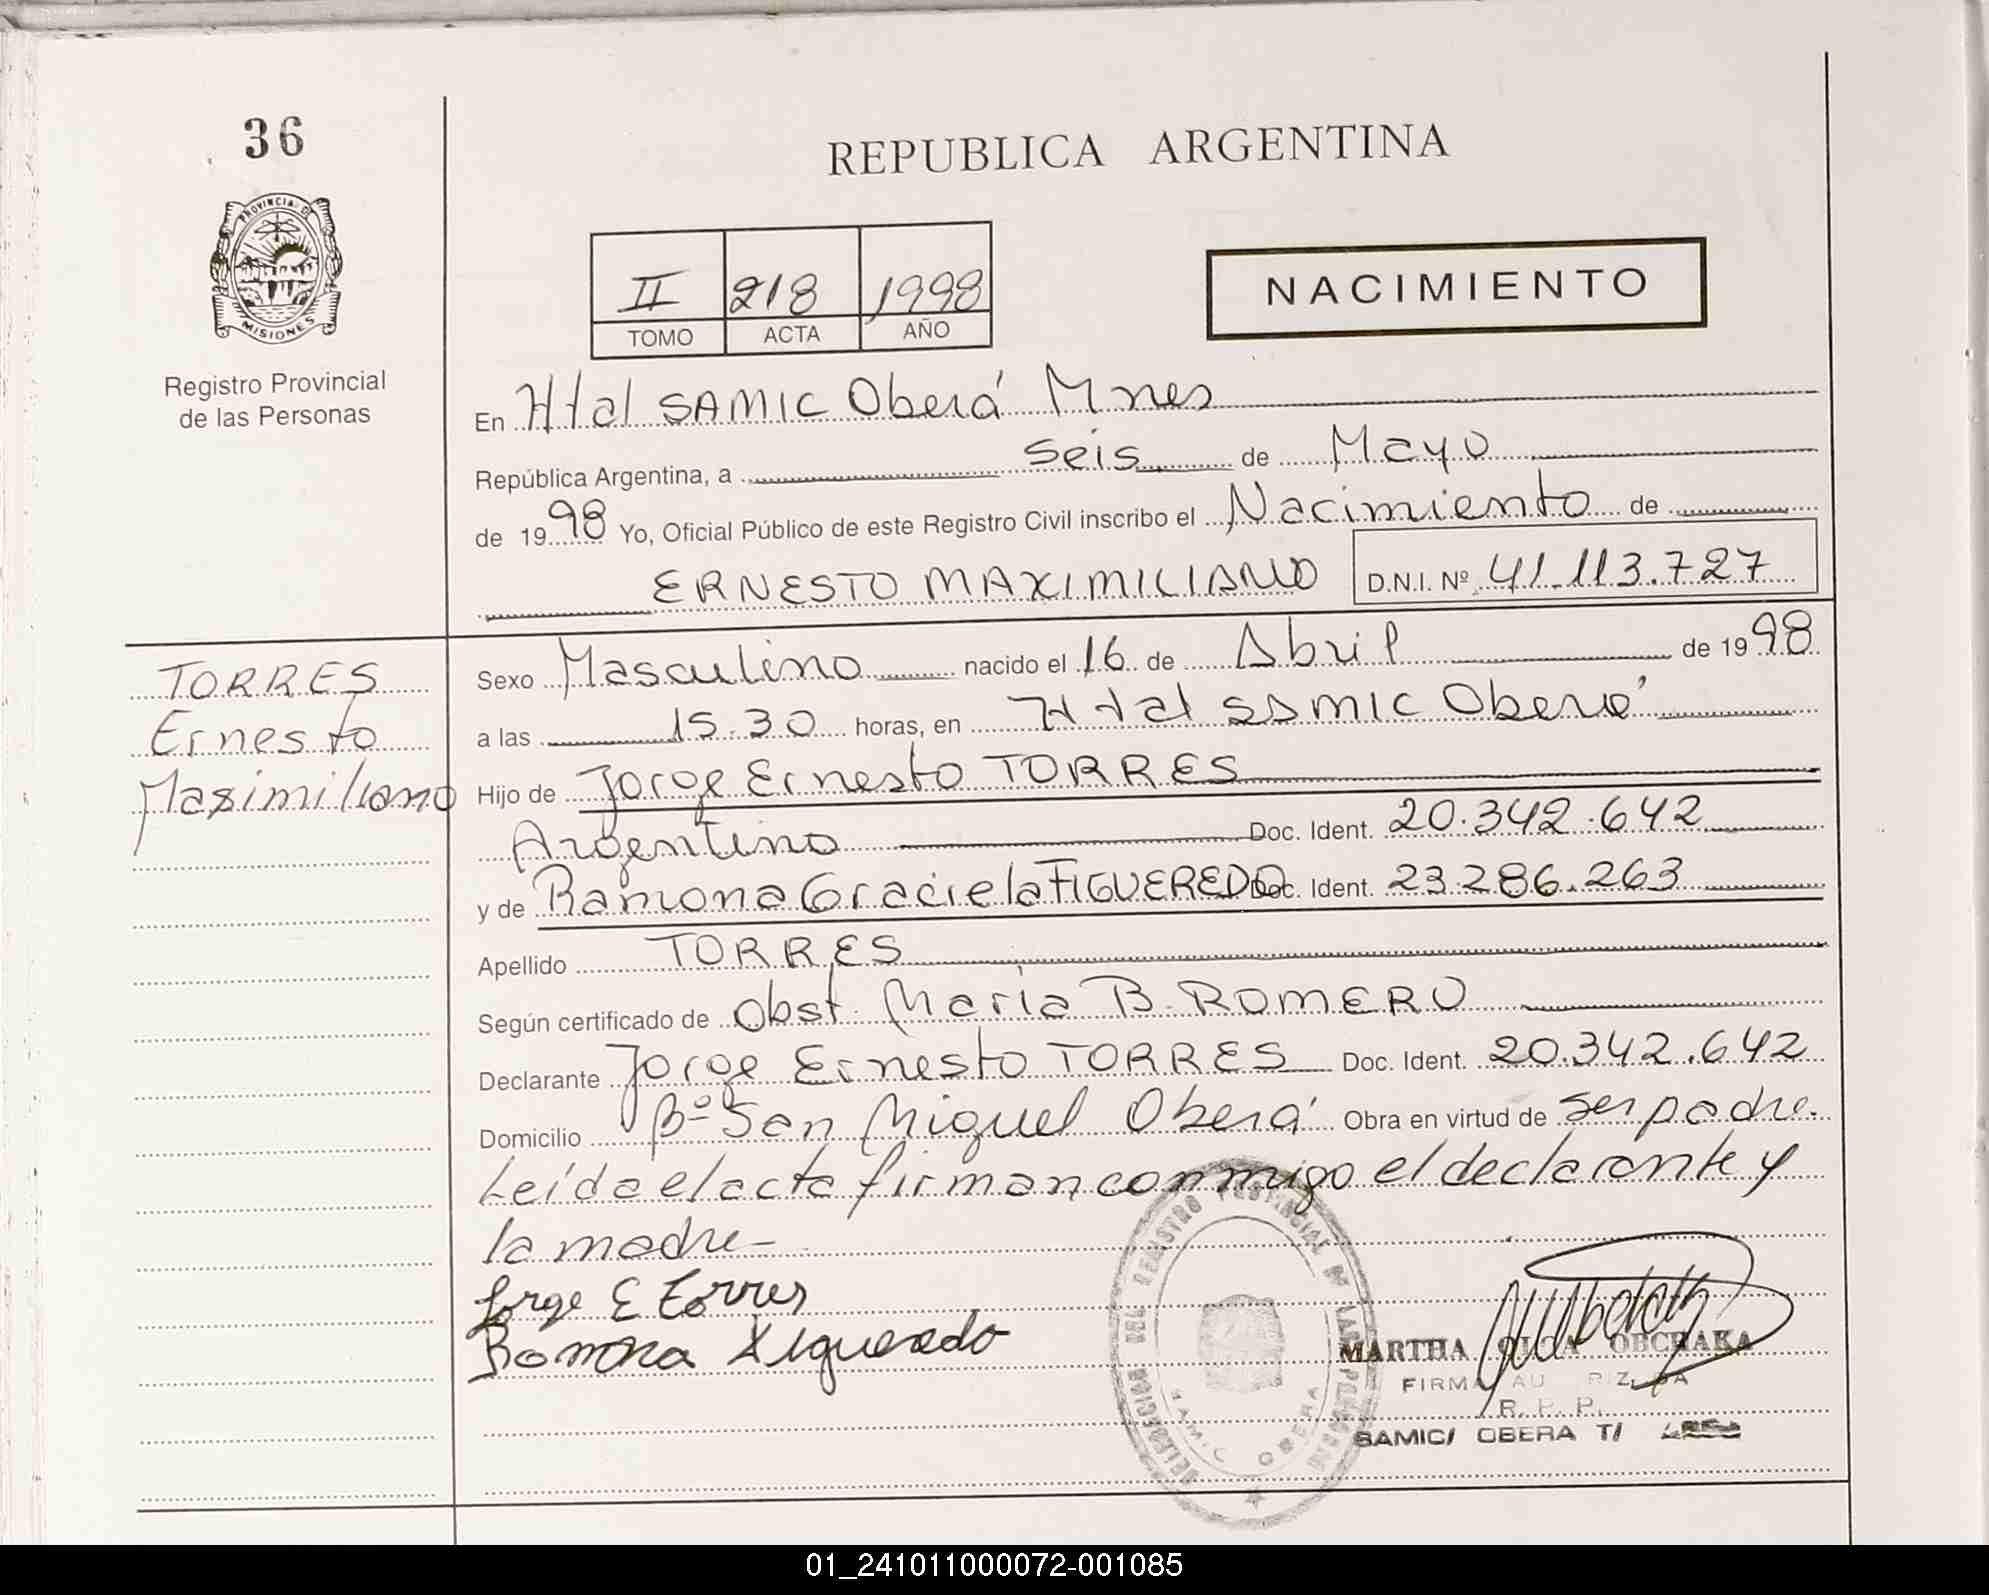 36
PROVINCIA DE
MISIONES
Registro Provincial
de las Personas
REPUBLICA ARGENTINA
II 218 1998
TOMO ACTA AÑO
NACIMIENTO
En Htal SAMIC Oberá Mnes
República Argentina, a seis de Mayo
de 1998 Yo, Oficial Público de este Registro Civil inscribo el Nacimiento de
ERNESTO MAXIMILIANO D.N.I. Nº 41.113.727
TORRES
Ernesto
Maximiliano
Sexo Masculino nacido el 16 de Abril de 1998
a las 15.30 horas, en Htal SAMIC Oberá
Hijo de Jorge Ernesto TORRES
Argentino Doc. Ident. 20.342.642
y de Ramona Graciela FIGUEREDO Doc. Ident. 23.286.263
Apellido TORRES
Según certificado de Obst. María B. ROMERO
Declarante Jorge Ernesto TORRES Doc. Ident. 20.342.642
Domicilio Bº San Miguel Oberá Obra en virtud de ser padre.
Leída el acta firman conmigo el declarante y
la madre-
Jorge E Torres
Ramona Figueredo
DEL REGISTRO PROVINCIAL DE LAS PERSONAS
SAMIC OBERA
MARTHA OLGA OBCHAKA
FIRMA AUTORIZADA
R. P. P.
SAMIC/ OBERA T/
01_241011000072-001085